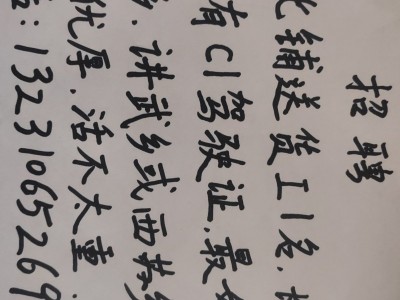 招聘
铺送货工1名,
有C1驾驶证.最
.讲武乡或西苏
优厚.活不太重
:13231065269